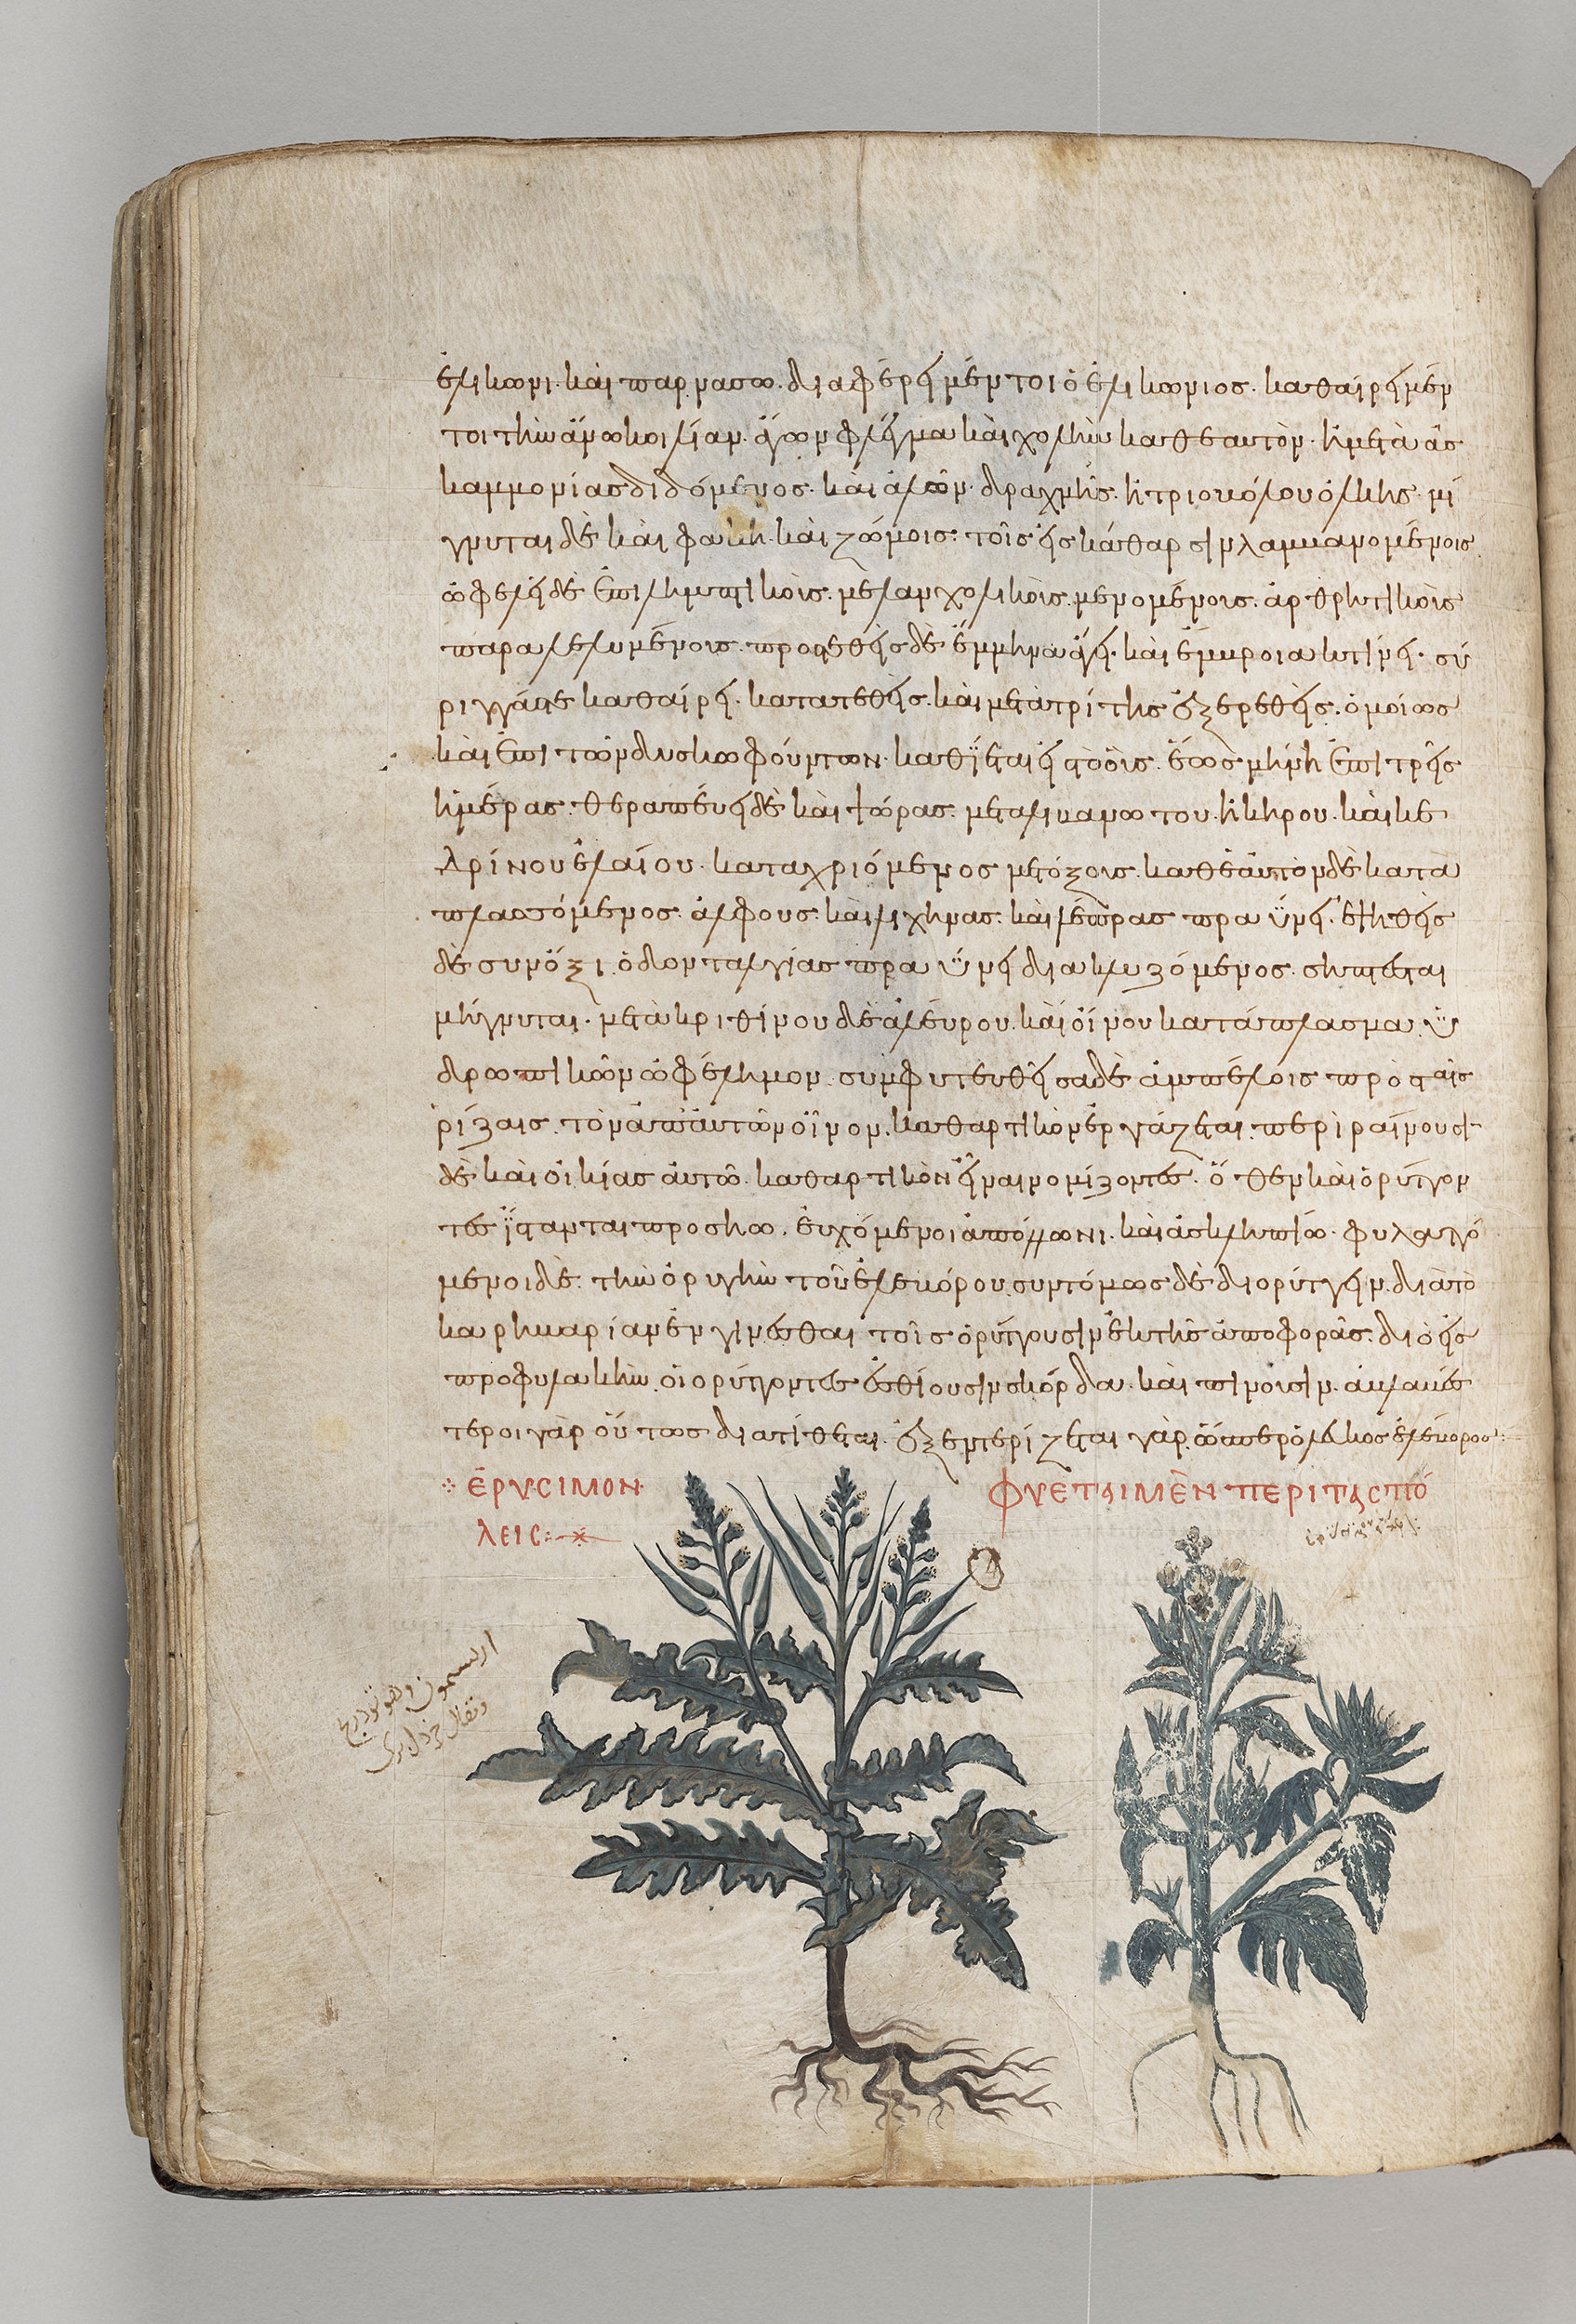 ἑλικωνι· καὶ παρνασω. διαφέρει μέντοι ὁ ἑλικωνιος. καθαίρει μέν
τοι τὴν ἄνω κοιλίαν. ἄγων φλέγμα καὶ χολὴν καθεαυτὸν. ἢ μετὰ ἀσ
καμμονίας διδόμενος. καὶ ἁλῶν. δραχμῆς. ἢ τριοβόλου ὁλκῆς. μί
γνυται δὲ καὶ φακῆ. καὶ ζώμοις. τοῖς εἰς κάθαρσιν λαμβανομένοις
ὠφελεῖ δὲ ἐπιληπτικοὶς. μὲλανχολικοὶς. μενομένοις. ἀρθριτικοὶς
παραλελυμένοις. προστεθεὶς δὲ ἔμμηνα ἄγει. καὶ ἔμβροια κτινει. σύ
ριγγάς τε καθαίρει. κατατεθεὶς. καὶ μετὰ τρίτης ἐξερεθεὶς. ὁμοίως
καὶ ἐπὶ τῶν δυσκωφούντων. καθϊεται εἰς τὸ οὖς. ἕως μὴν ἢ ἐπὶ τρεῖς
ἡμέρας. θεραπέυει δὲ καὶ ψώρας. μετα λιβανωτου. ἢ κηρου. καὶ κε
δρίνου ἐλαίου. καταχριόμενος μετ όξους. καθ ἑαυτὸν δὲ κατα
πλαστόμενος. ἀλφους. καὶ λιχηνας. καὶ λέπρας πραΰνει. ἑψηθεὶς
δὲ συν ὄξι. ὀδονταλγίας πραΰνει διακλυζόμενος. σηπταῖς
μίγνυται. μετὰ κριθίνου δὲ ἀλέυρου. καὶ οἴνου κατάπλασμα ὑ
δρωπικῶν ὠφέλημον. συμφυτευθεῖσα δὲ ἀμπέλοις πρὸς ταις
ῥίζαις. τὸν ἀπ ἀυτῶν οἶνον. καθαρτικὸν ἐργάζεται. περὶραίνουσι
δὲ καὶ οἰκίας ἀυτῶ. καθαρτικὸν εἶναι νομίζοντες. ὅθεν καὶ ὀρύττον
τες ἵστανται προς ηω. ἐυχόμενοι ἀπόλλωνι. καὶ ἀσκληπιῶ. φυλαττό
μενοι δὲ. τὴν ὀρυγὴν τοῦ ἑλεβόρου συντόμως δὲ διορύττειν. διὰ τὸ
καρηβαρίαν ἐνγίνεσθαι τοῖς ὀρύττουσιν ἐκ τῆς ἀποφορᾶς. διὸ εἰς
προφυλακὴν. οἱ ορύττοντες ἐσθίουσιν σκόρδα. καὶ πινουσιν. ἀβλαβέσ
τεροι γὰρ οὕτως διατίθεται. ἐξεντερίζεται γὰρ. ὥσπερ ὁ λευκὸς ἑλέβορος:
ἘΡΥΣΙΜΟΝ ΦΥΕΤΑΙ ΜῈΝ ΠΕΡΙ ΤᾺΣ ΠΌ
ΛΕΙΣ:
ارسمون وهو تودرج
ويقال خردل بري